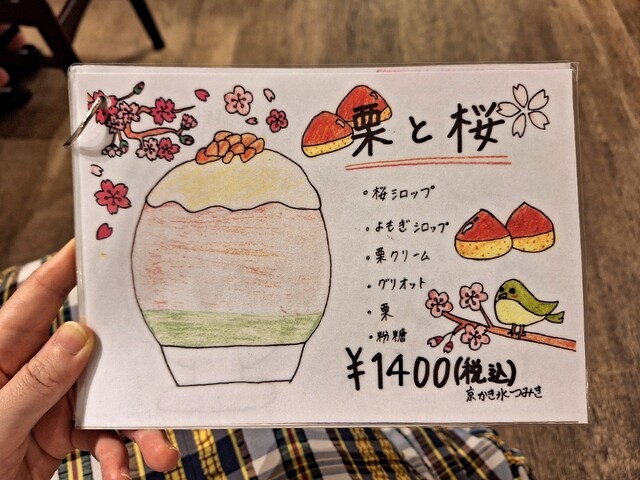 栗と桜
・桜シロップ
・よもぎシロップ
・栗クリーム
・グリオット
・栗
・粉糖
¥1400(税込)
京かき氷つみき